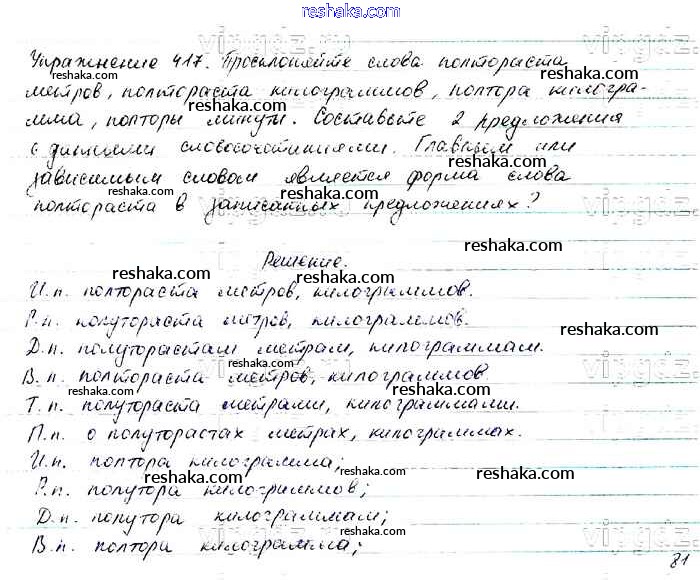 reshaka.com
Упражнение 417. Просклоняйте слова полтораста
reshaka.com reshaka.com
метров, полтораста килограммов, полтора килогра-
reshaka.com reshaka.com
мма, полторы минуты. Составьте 2 предложения
reshaka.com
с данными словосочетаниями. Главным или
reshaka.com
зависимым словом является форма слова
reshaka.com
полтораста в записанных предложениях?
reshaka.com
Решение.
reshaka.com
И.п. полтораста метров, килограммов.
reshaka.com
Р.п. полутораста метров, килограммов.
reshaka.com
Д.п. полуторастам метрам, килограммам.
reshaka.com
В.п. полтораста метров, килограммов.
reshaka.com reshaka.com
Т.п. полутораста метрами, килограммами.
reshaka.com
П.п. о полуторастах метрах, килограммах.
reshaka.com
И.п. полтора килограмма;
reshaka.com reshaka.com
Р.п. полутора килограммов;
reshaka.com
Д.п. полутора килограммам;
reshaka.com
В.п. полтора килограмма;
reshaka.com
81